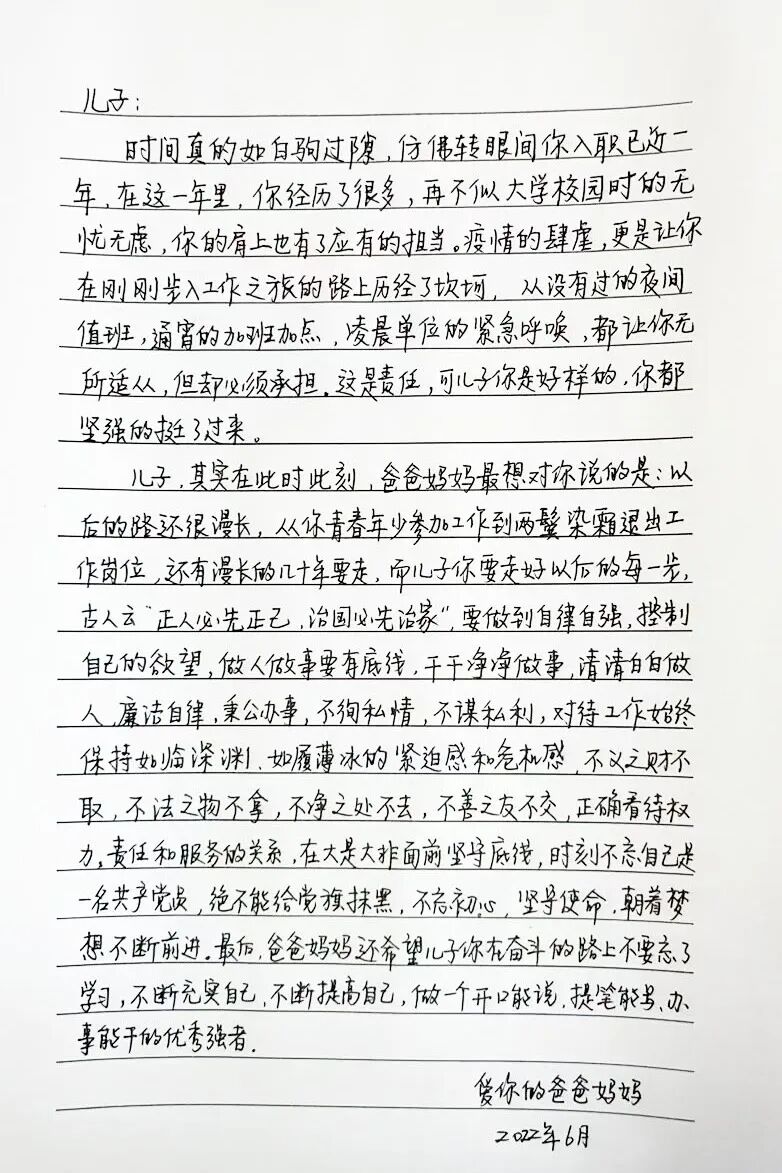 儿子：
时间真的如白驹过隙，仿佛转眼间你入职已近一
年，在这一年里，你经历了很多，再不似大学校园时的无
忧无虑，你的肩上也有了应有的担当。疫情的肆虐，更是让你
在刚刚步入工作之旅的路上历经了坎坷，从没有过的夜间
值班，通宵的加班加点，凌晨单位的紧急呼唤，都让你无
所适从，但却必须承担。这是责任，可儿子你是好样的，你都
坚强的挺了过来。
儿子，其实在此时此刻，爸爸妈妈最想对你说的是：以
后的路还很漫长，从你青春年少参加工作到两鬓染霜退出工
作岗位，还有漫长的几十年要走，而儿子你要走好以后的每一步，
古人云“正人必先正己，治国必先治家”，要做到自律自强，控制
自己的欲望，做人做事要有底线，干干净净做事，清清白白做
人，廉洁自律，秉公办事，不徇私情，不谋私利，对待工作始终
保持如临深渊、如履薄冰的紧迫感和危机感，不义之财不
取，不法之物不拿，不净之处不去，不善之友不交，正确看待权
力、责任和服务的关系，在大是大非面前坚守底线，时刻不忘自己是
一名共产党员，绝不能给党旗抹黑，不忘初心，坚守使命，朝着梦
想不断前进。最后，爸爸妈妈还希望儿子你在奋斗的路上不要忘了
学习，不断充实自己，不断提高自己，做一个开口能说，提笔能写、办
事能干的优秀强者。
爱你的爸爸妈妈
2022年6月